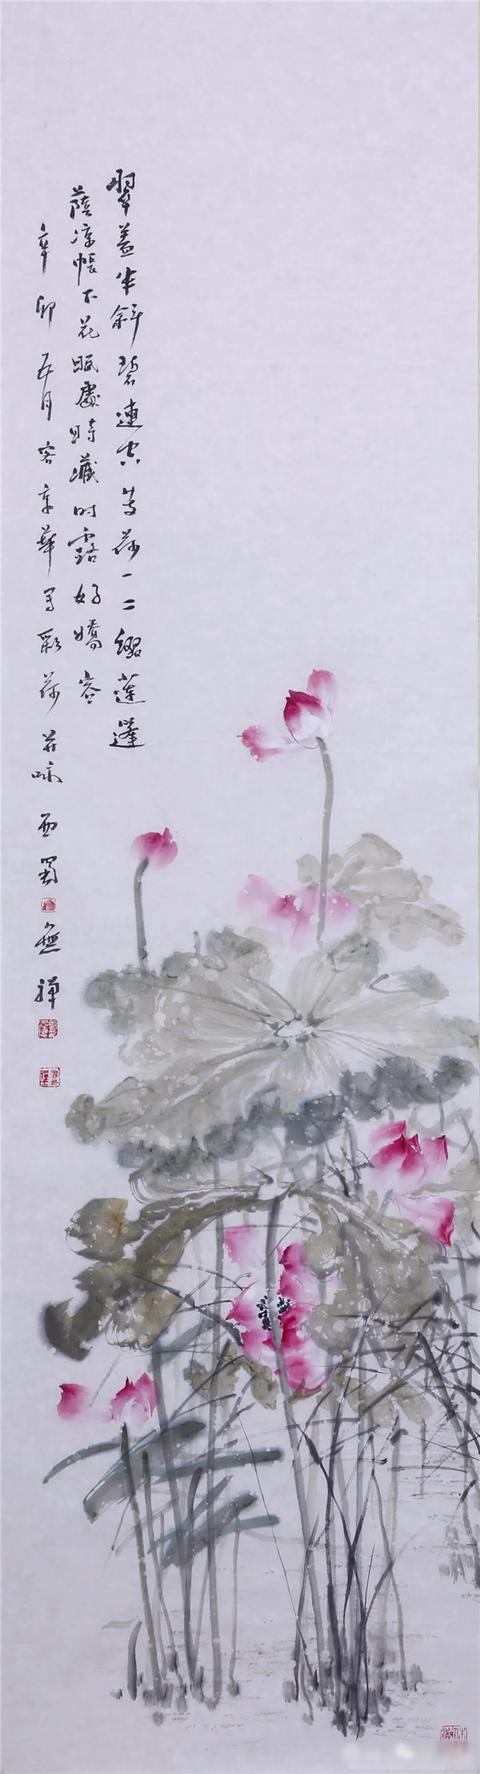 翠蓋半斜碧連空荷一二綴蓮蓬
蔭涼帳下花眠處時藏时露好嬌容
辛卯五月客京華写彩荷并咏西蜀無禅